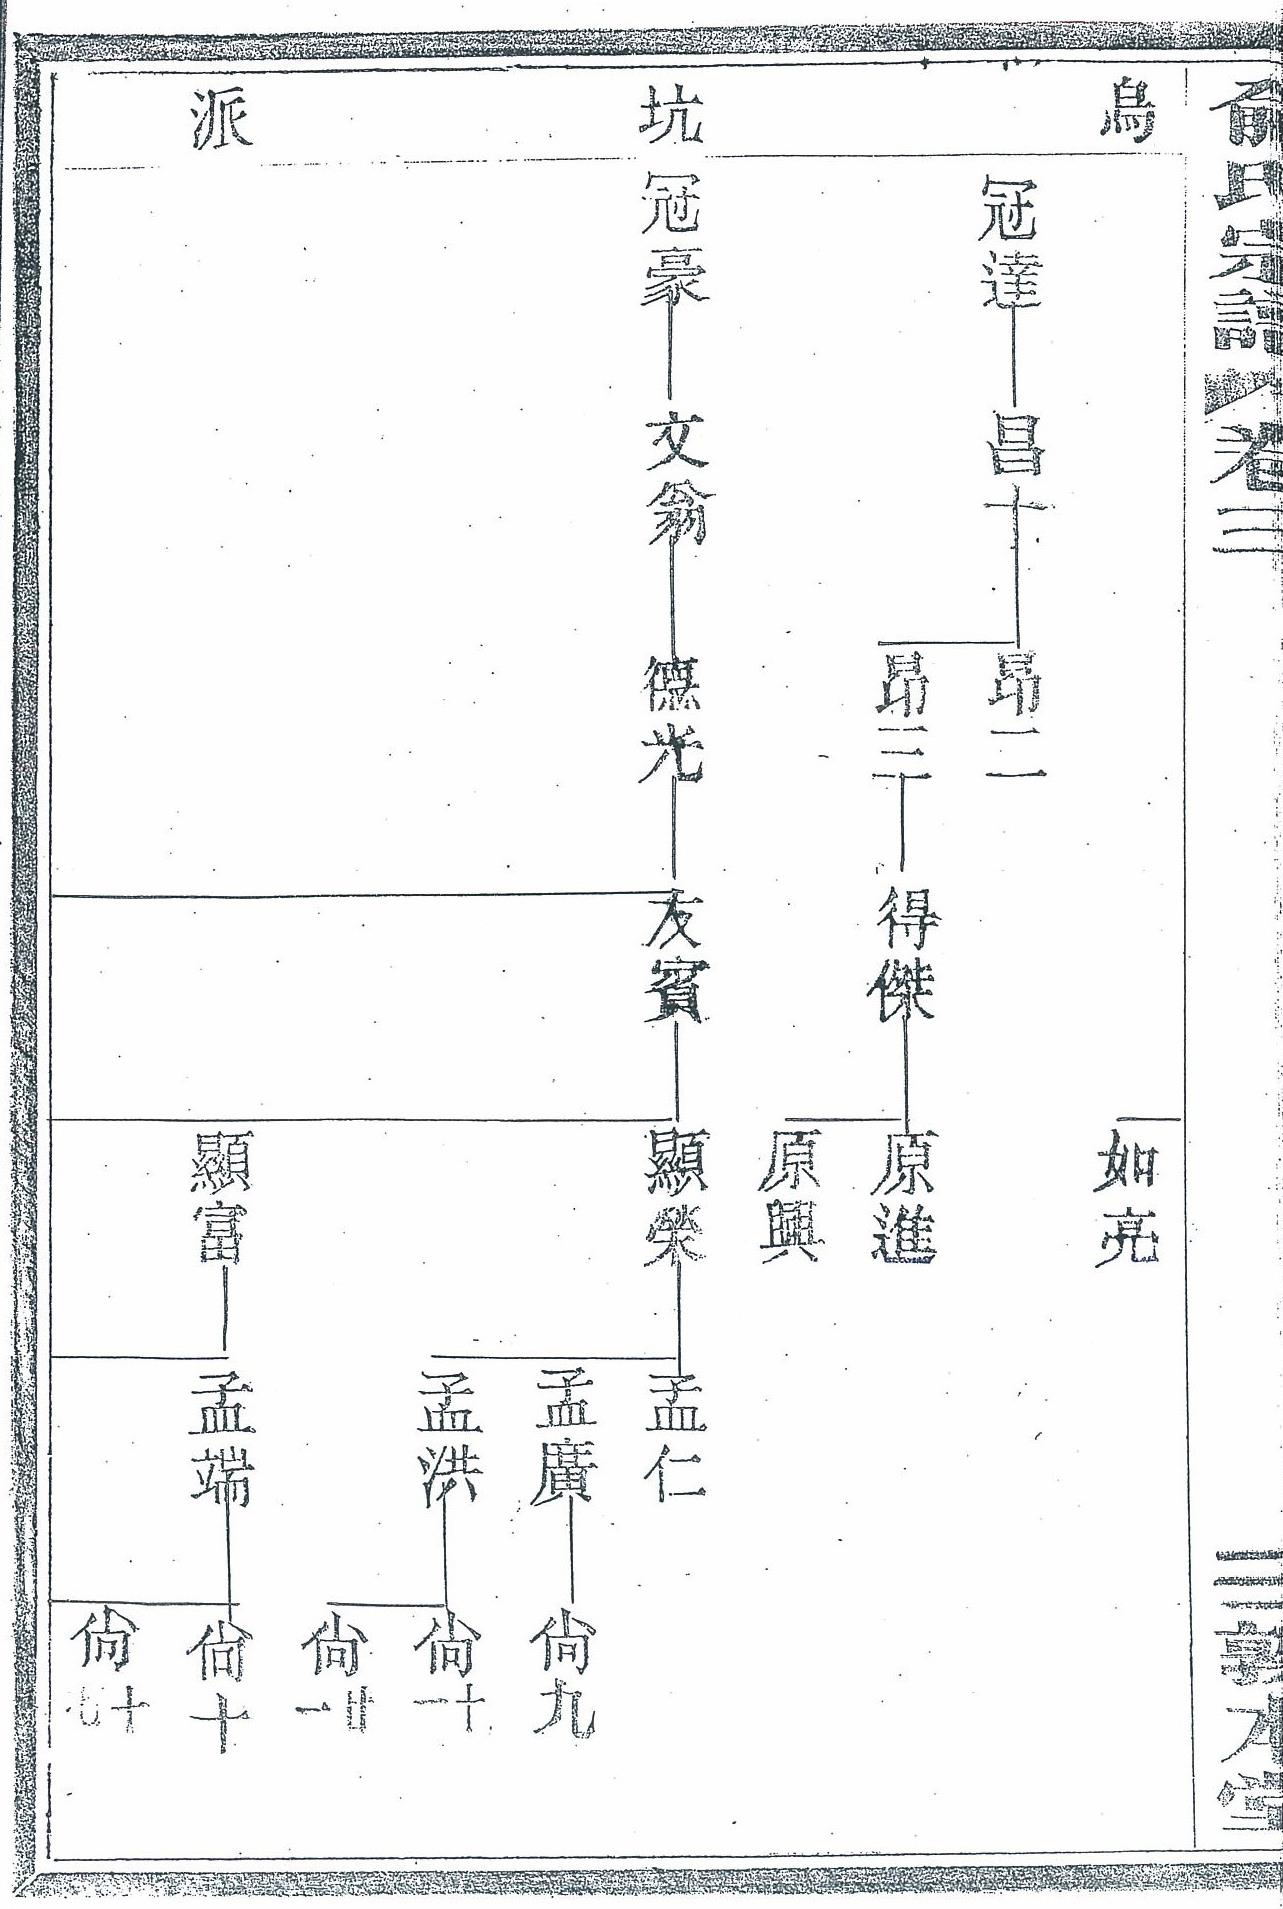 俞氏宗譜 卷三
三 敦本堂
烏坑派
如亮
冠達
昌十
昂二
昂三
得傑
原進
原興
冠豪
文翁
德光
友賓
顯榮
孟仁
孟廣
尙九
孟洪
尙十一
尙廿一
顯富
孟端
尙十
尙十七